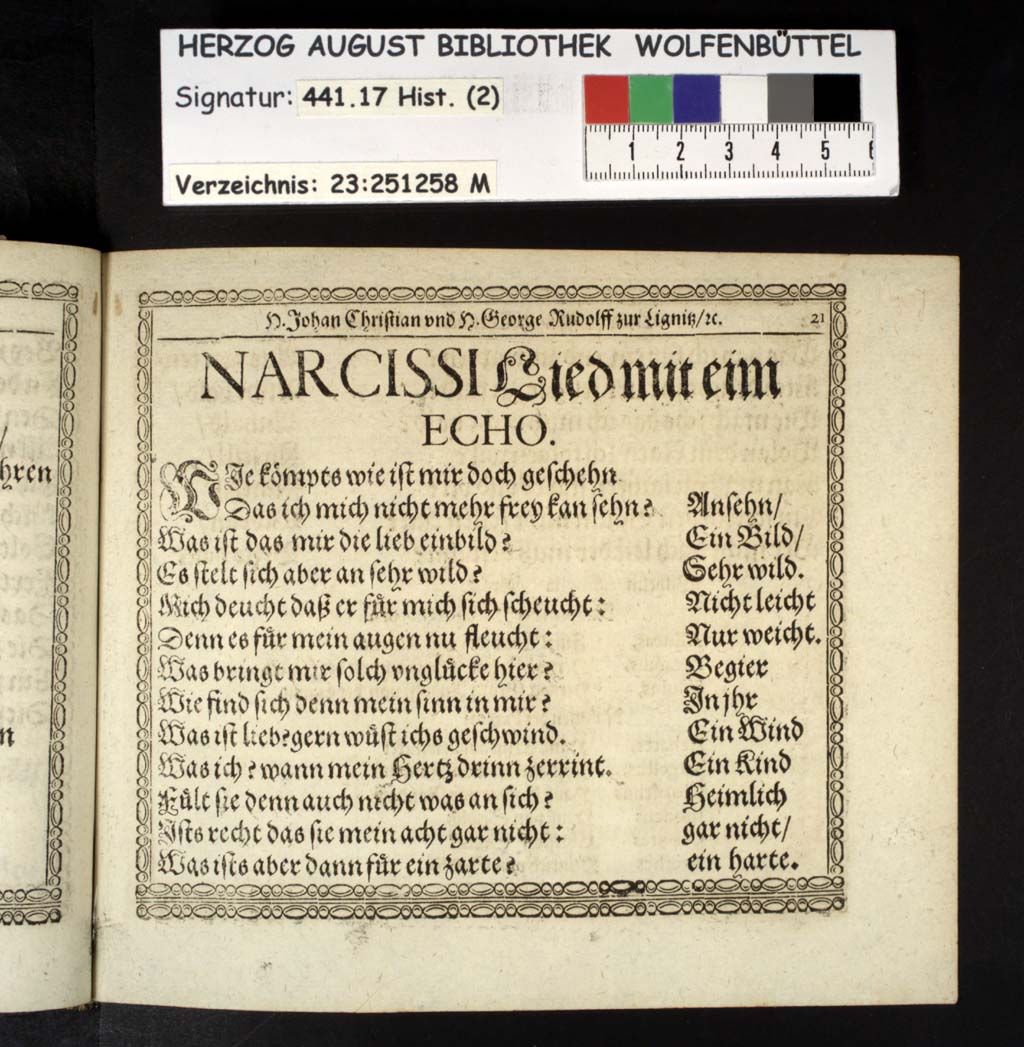 HERZOG AUGUST BIBLIOTHEK WOLFENBÜTTEL
Signatur: 441.17 Hist. (2)
1 2 3 4 5 6
Verzeichnis: 23:251258 M
H. Johan Christian vnd H. George Rudolff zur Lignitz/ꝛc. 21
NARCISSI Lied mit eim
ECHO.
WJe kömpts wie ist mir doch geschehn
Das ich mich nicht mehr frey kan sehn? Ansehn/
Was ist das mir die lieb einbild? Ein Bild/
Es stelt sich aber an sehr wild? Sehr wild.
Mich deucht daß er für mich sich scheucht: Nicht leicht
Denn es für mein augen nu fleucht: Nur weicht.
Was bringt mir solch vnglücke hier? Begier
Wie find sich denn mein sinn in mir? Jn jhr
Was ist lieb? gern wüst ichs geschwind. Ein Wind
Was ich? wann mein Hertz drinn zerrint. Ein Kind
Fült sie denn auch nicht was an sich? Heimlich
Jsts recht das sie mein acht gar nicht: gar nicht/
Was ists aber dann für ein zarte? ein harte.
/
hren
n